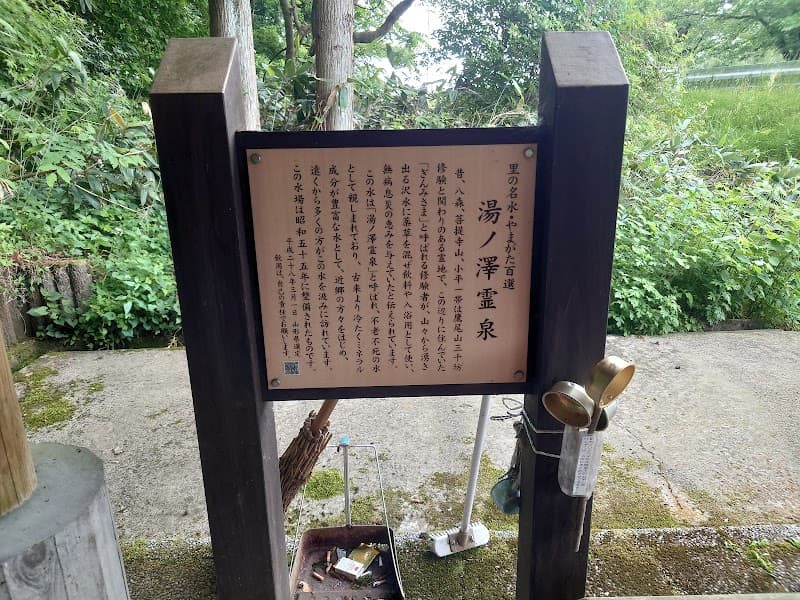 里の名水・やまがた百選
湯ノ澤霊泉
昔、八森、菩提寺山、小平一帯は鷹尾山三千坊
修験と関わりのある霊地で、この辺りに住んでいた
「ぎんみさま」と呼ばれる修験者が、山々から湧き
出る沢水に薬草を混ぜ飲料や入浴用として使い、
無病息災の恵みを与えていたと伝えられています。
この水は「湯ノ澤霊泉」と呼ばれ、不老不死の水
として親しまれており、古来より冷たくミネラル
成分が豊富な水として、近郷の方々をはじめ、
遠くから多くの方がこの水を汲みに訪れています。
この水場は昭和五十五年に整備されたものです。
平成二十八年三月一日 山形県選定
飲用は、自己の責任でお願いします。